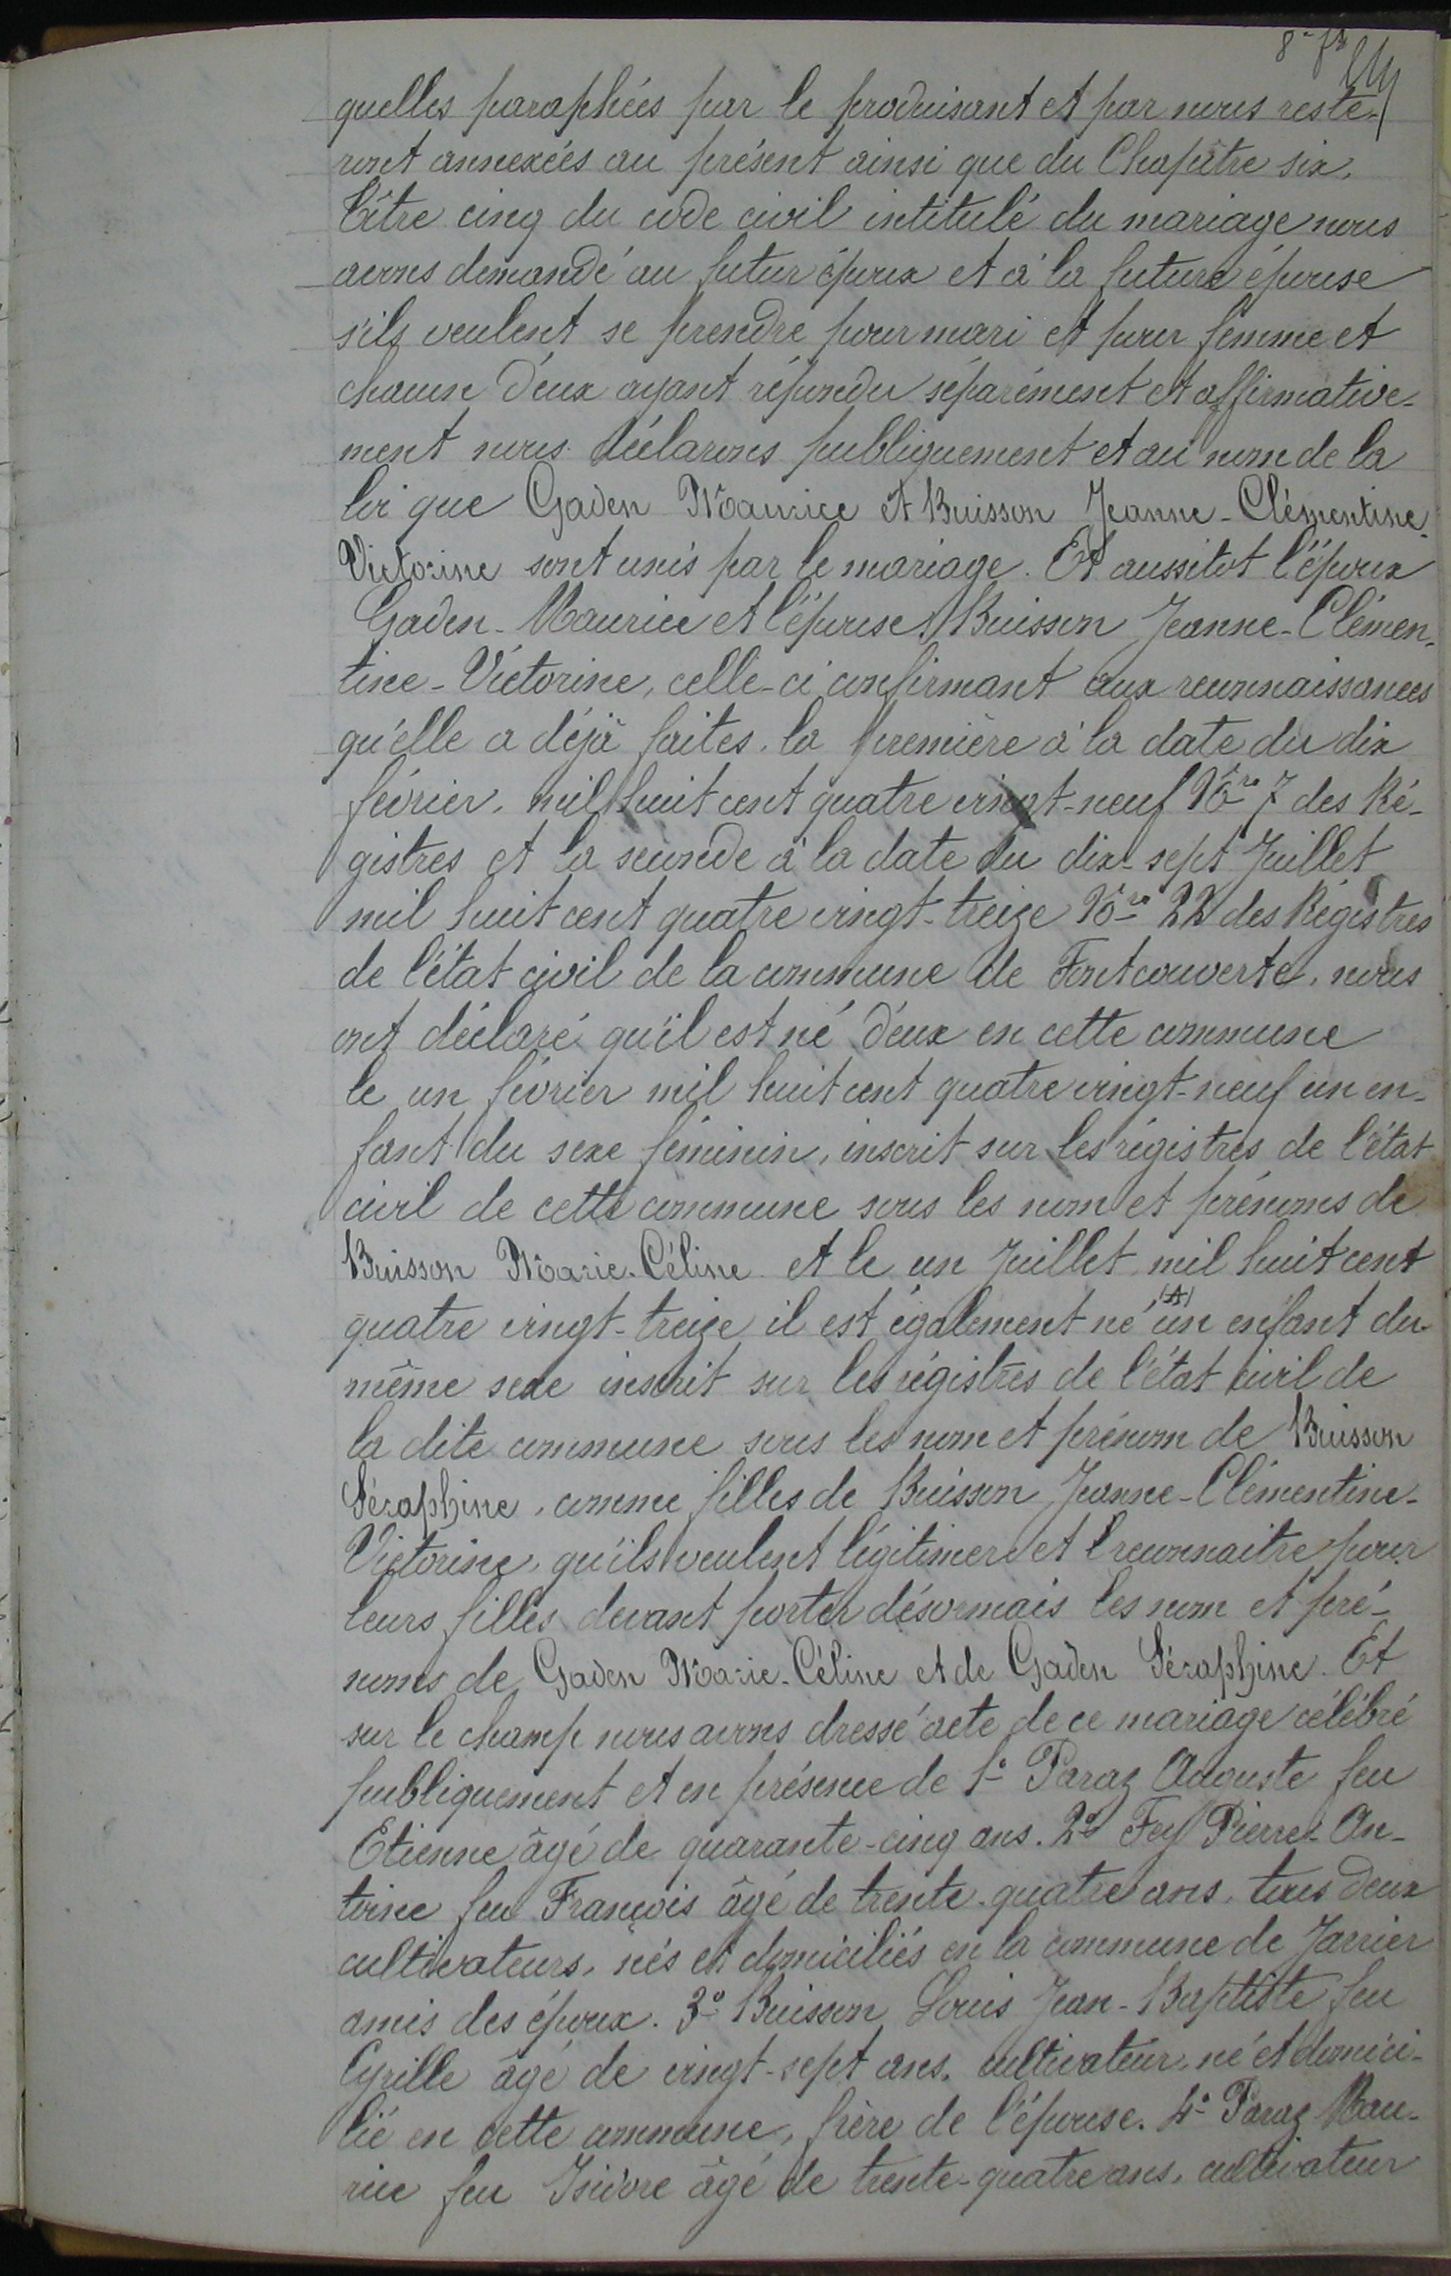 8
quelles paraphées par le produisant et par nous reste-
ront annexées au présent ainsi que du Chapitre six,
Titre cinq du code civil intitulé du mariage nous
avons demandé au futur époux et à la future épouse
s'ils veulent se prendre pour mari et pour femme et
chacun d'eux ayant répondu séparément et affirmative-
ment nous déclarons publiquement et au nom de la
loi que Gaden Maurice et Buisson Jeanne-Clémentine-
Victorine sont unis par le mariage. Et aussitot l'époux
Gaden-Maurice et l'épouse Buisson Jeanne-Clémen-
tine-Victorine, celle-ci confirmant aux reconnaissances
qu'elle a déjà faites, la première à la date du dix
février, mil huit cent quatre vingt-neuf No 7 des Ré-
gistres et la seconde à la date du dix-sept Juillet
mil huit cent quatre vingt-treize No 22 des Régistres
de l'état civil de la commune de Fontcouverte, nous
ont déclaré qu'il est né d'eux en cette commune
le un février mil huit cent quatre vingt-neuf un en-
fant du sexe féminin, inscrit sur les régistres de l'état
civil de cette commune sous les nom et prénoms de
Buisson Marie-Céline et le un Juillet mil huit cent
quatre vingt-treize il est également né (A) un enfant du
même sexe inscrit sur les régistres de l'état civil de
la dite commune sous les nom et prénom de Buisson
Séraphine, comme filles de Buisson Jeanne-Clémentine-
Victorine, qu'ils veulent légitimer et reconnaitre pour
leurs filles devant porter désormais les nom et pré-
noms de Gaden Marie-Céline et de Gaden Séraphine. Et
sur le champ nous avons dressé acte de ce mariage célébré
publiquement et en présence de 1° Paraz Auguste feu
Etienne âgé de quarante-cinq ans. 2° Fey Pierre-An-
toine feu François âgé de trente-quatre ans, tous deux
cultivateurs, nés et domiciliés en la commune de Jarrier
amis des époux. 3° Buisson Louis Jean-Baptiste feu
Cyrille âgé de vingt-sept ans, cultivateur, né et domici-
lié en cette commune, frère de l'épouse. 4° Paraz Mau-
rice feu Isidore âgé de trente-quatre ans, cultivateur